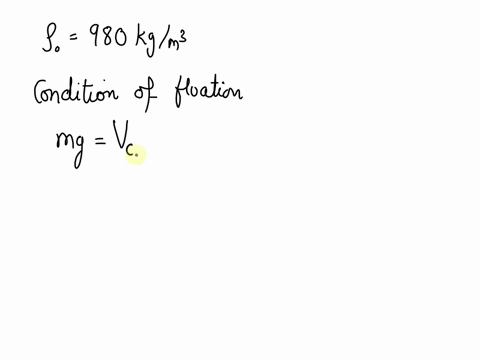 ρ₀ = 980 kg/m³
Condition of floation
mg = V_c.